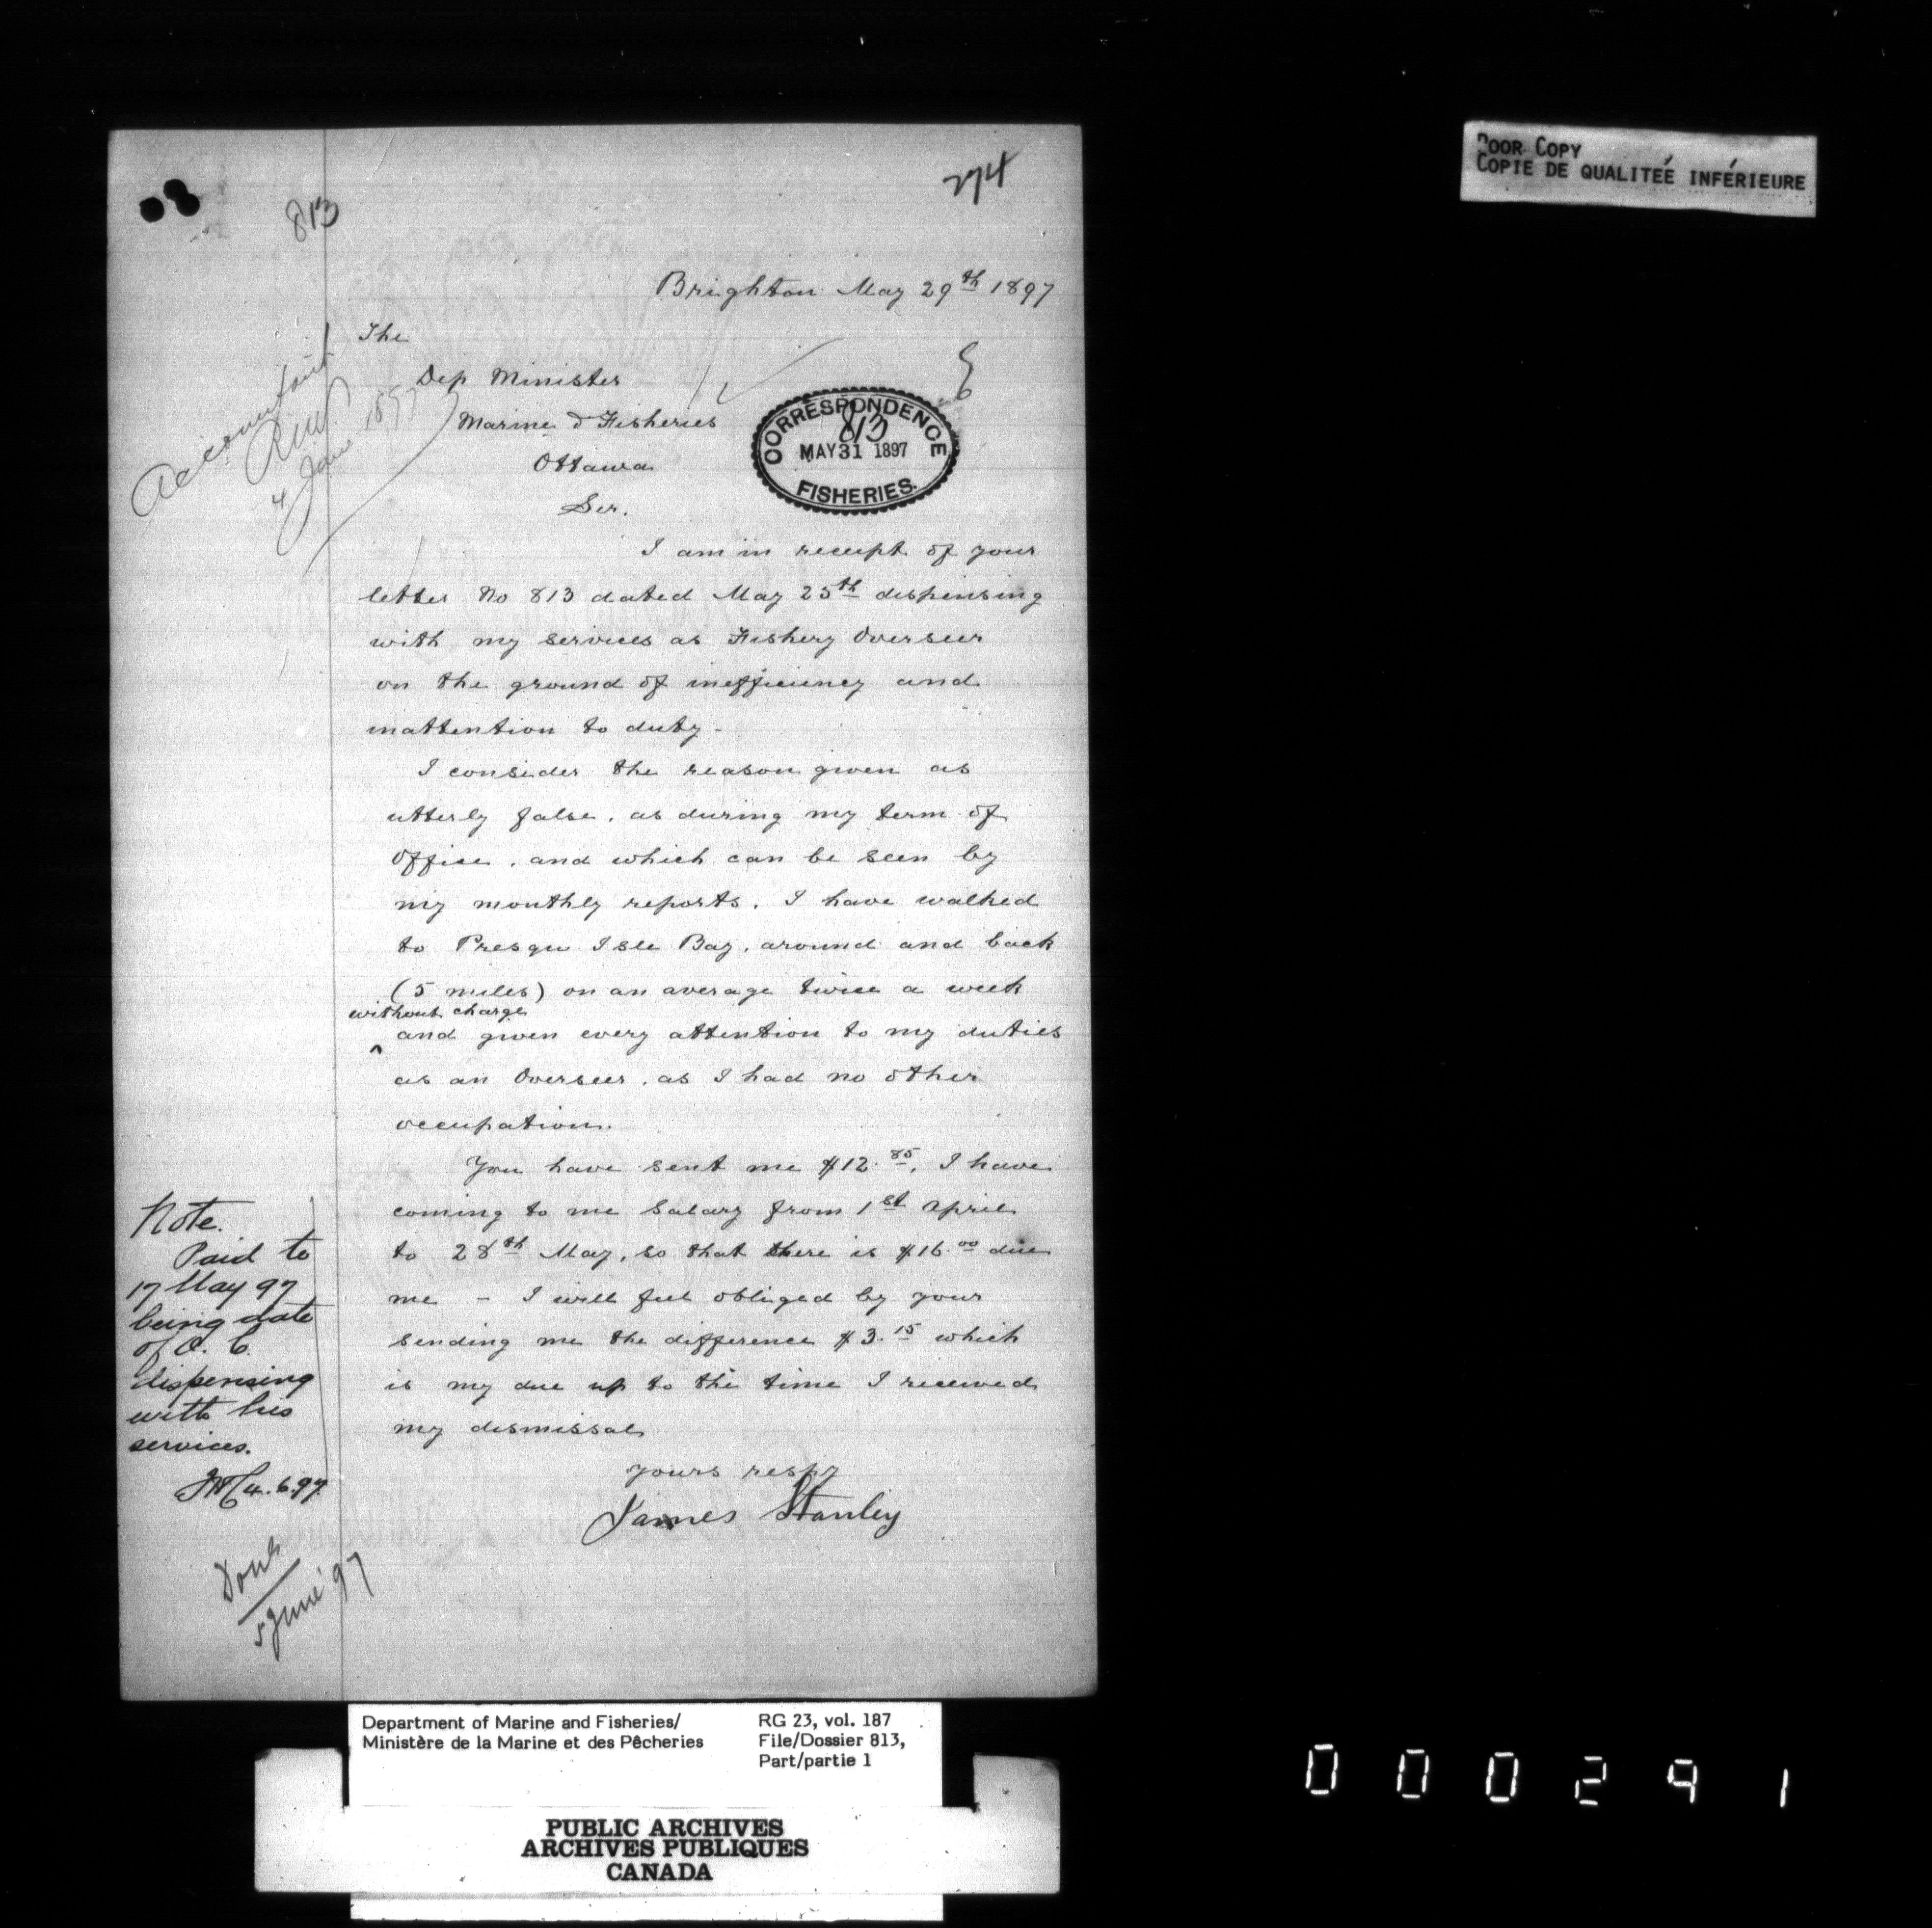 POOR COPY
COPIE DE QUALITEÉ INFÉRIEURE
274
813
Brighton May 29th 1897
The
Dep Minister
Marine & Fisheries
Ottawa
Sir.
Accountant
4 June 1897
CORRESPONDENCE
813
MAY 31 1897
FISHERIES.
I am in receipt of your
letter No 813 dated May 25th dispensing
with my services as Fishery Overseer
on the ground of inefficiency and
inattention to duty -
I consider the reason given as
utterly false, as during my term of
office, and which can be seen by
my monthly reports, I have walked
to Presqu Isle Bay, around and back
(5 miles) on an average twice a week
without charge
^ and given every attention to my duties
as an Overseer, as I had no other
occupation.
You have sent me $12.85, I have
coming to me Salary from 1st April
to 28th May, so that there is $16.00 due
me - I will feel obliged by your
sending me the difference $3.15 which
is my due up to the time I received
my dismissal
yours respy
James Stanley
Note.
Paid to
17 May 97
being date
of O. C.
dispensing
with his
services.
4.6.97.
Done
5 June 97
Department of Marine and Fisheries/
Ministère de la Marine et des Pêcheries
RG 23, vol. 187
File/Dossier 813,
Part/partie 1
PUBLIC ARCHIVES
ARCHIVES PUBLIQUES
CANADA
000291